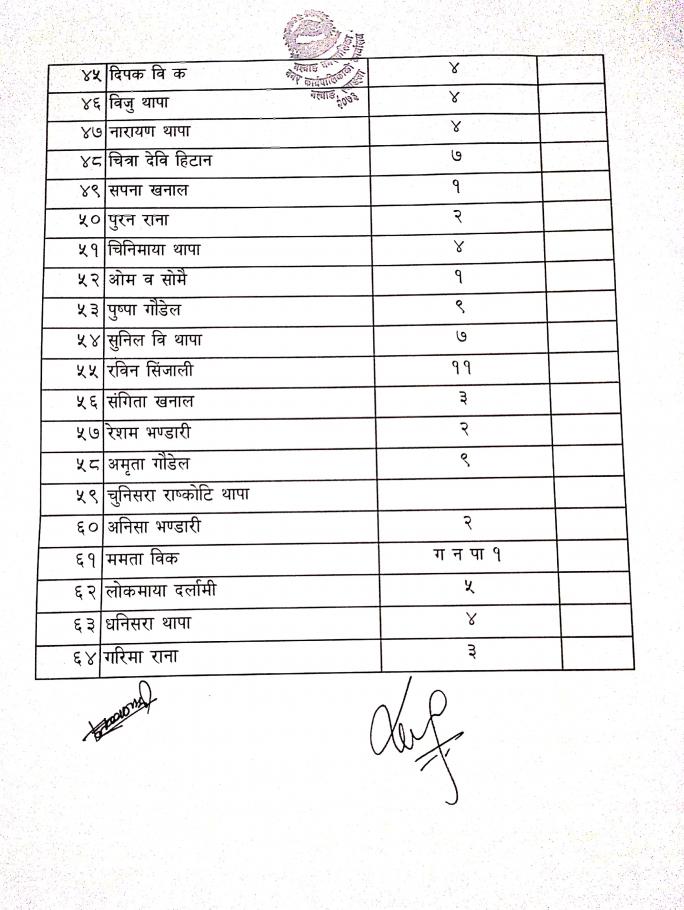 नगर कार्यपालिकाको कार्यालय
२०७३
४५ दिपक वि क ४
४६ विजु थापा ४
४७ नारायण थापा ४
४८ चित्रा देवि हिटान ७
४९ सपना खनाल १
५० पुरन राना २
५१ चिनिमाया थापा ४
५२ ओम व सोमै १
५३ पुष्पा गौडेल ९
५४ सुनिल वि थापा ७
५५ रविन सिंजाली ११
५६ संगिता खनाल ३
५७ रेशम भण्डारी २
५८ अमृता गौडेल ९
५९ चुनिसरा राष्कोटि थापा
६० अनिसा भण्डारी २
६१ ममता विक ग न पा १
६२ लोकमाया दर्लामी ५
६३ धनिसरा थापा ४
६४ गरिमा राना ३